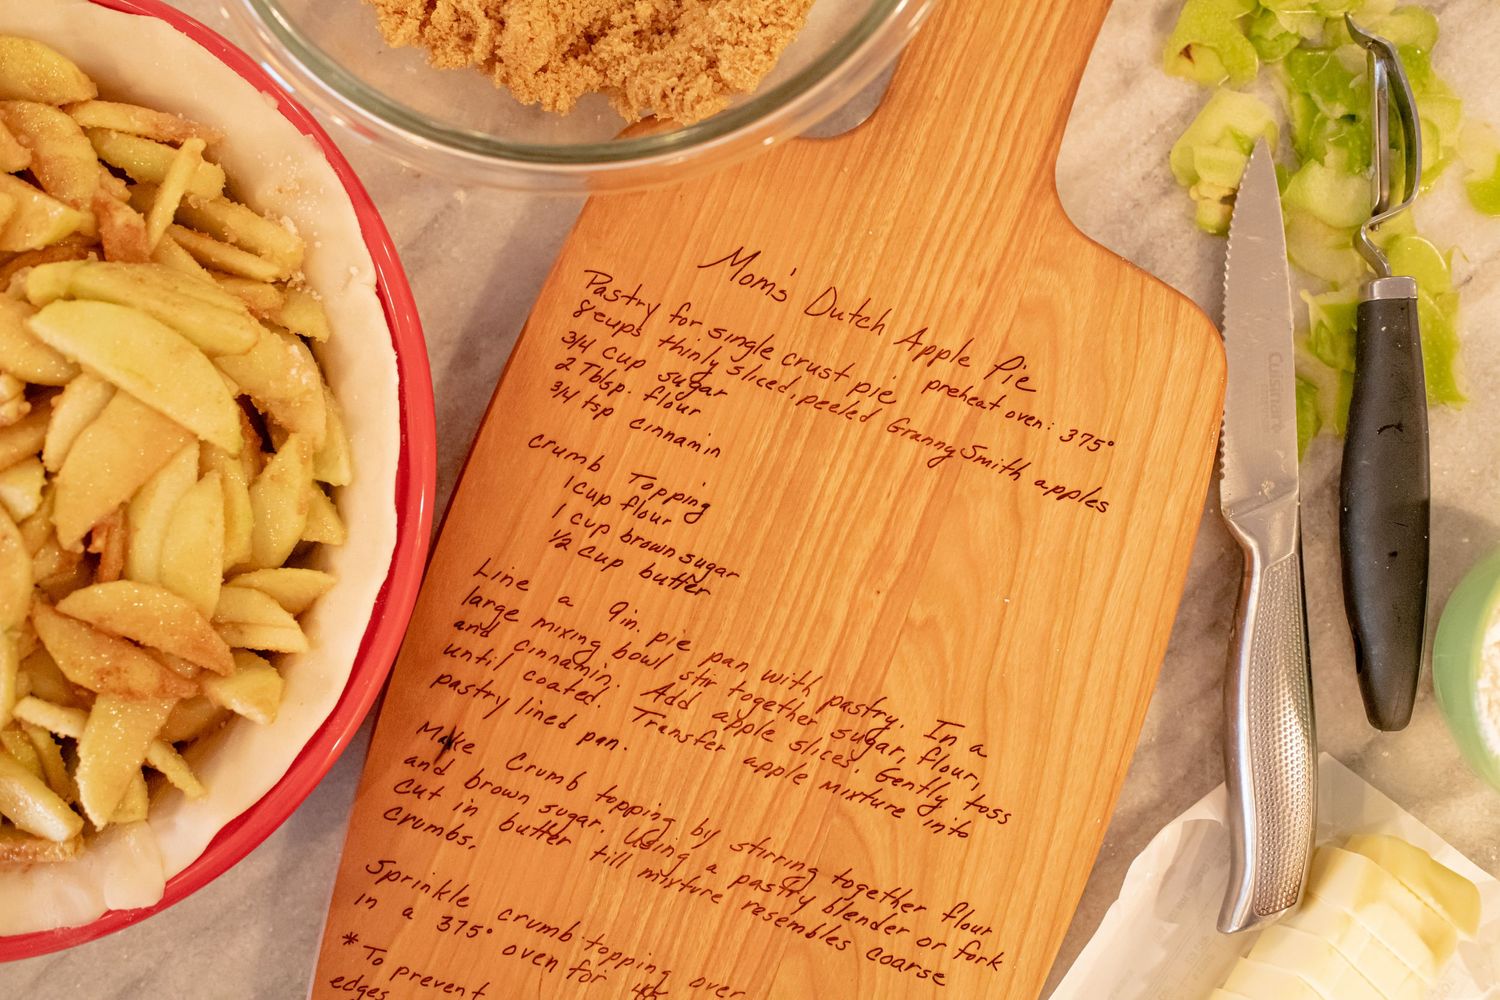 Mom's Dutch Apple Pie
Pastry for single crust pie preheat oven: 375°
8 cups thinly sliced, peeled Granny Smith apples
3/4 cup sugar
2 Tbsp. flour
3/4 tsp cinnamin
Crumb Topping
1 cup flour
1 cup brown sugar
1/2 cup butter
Line a 9in. pie pan with pastry. In a
large mixing bowl stir together sugar, flour,
and cinnamin. Add apple slices. Gently toss
until coated. Transfer apple mixture into
pastry lined pan.
Make Crumb topping by stirring together flour
and brown sugar. Using a pastry blender or fork
cut in butter till mixture resembles coarse
crumbs.
Sprinkle crumb topping over
in a 375° oven for 45
* To prevent
edges
Cuisinart